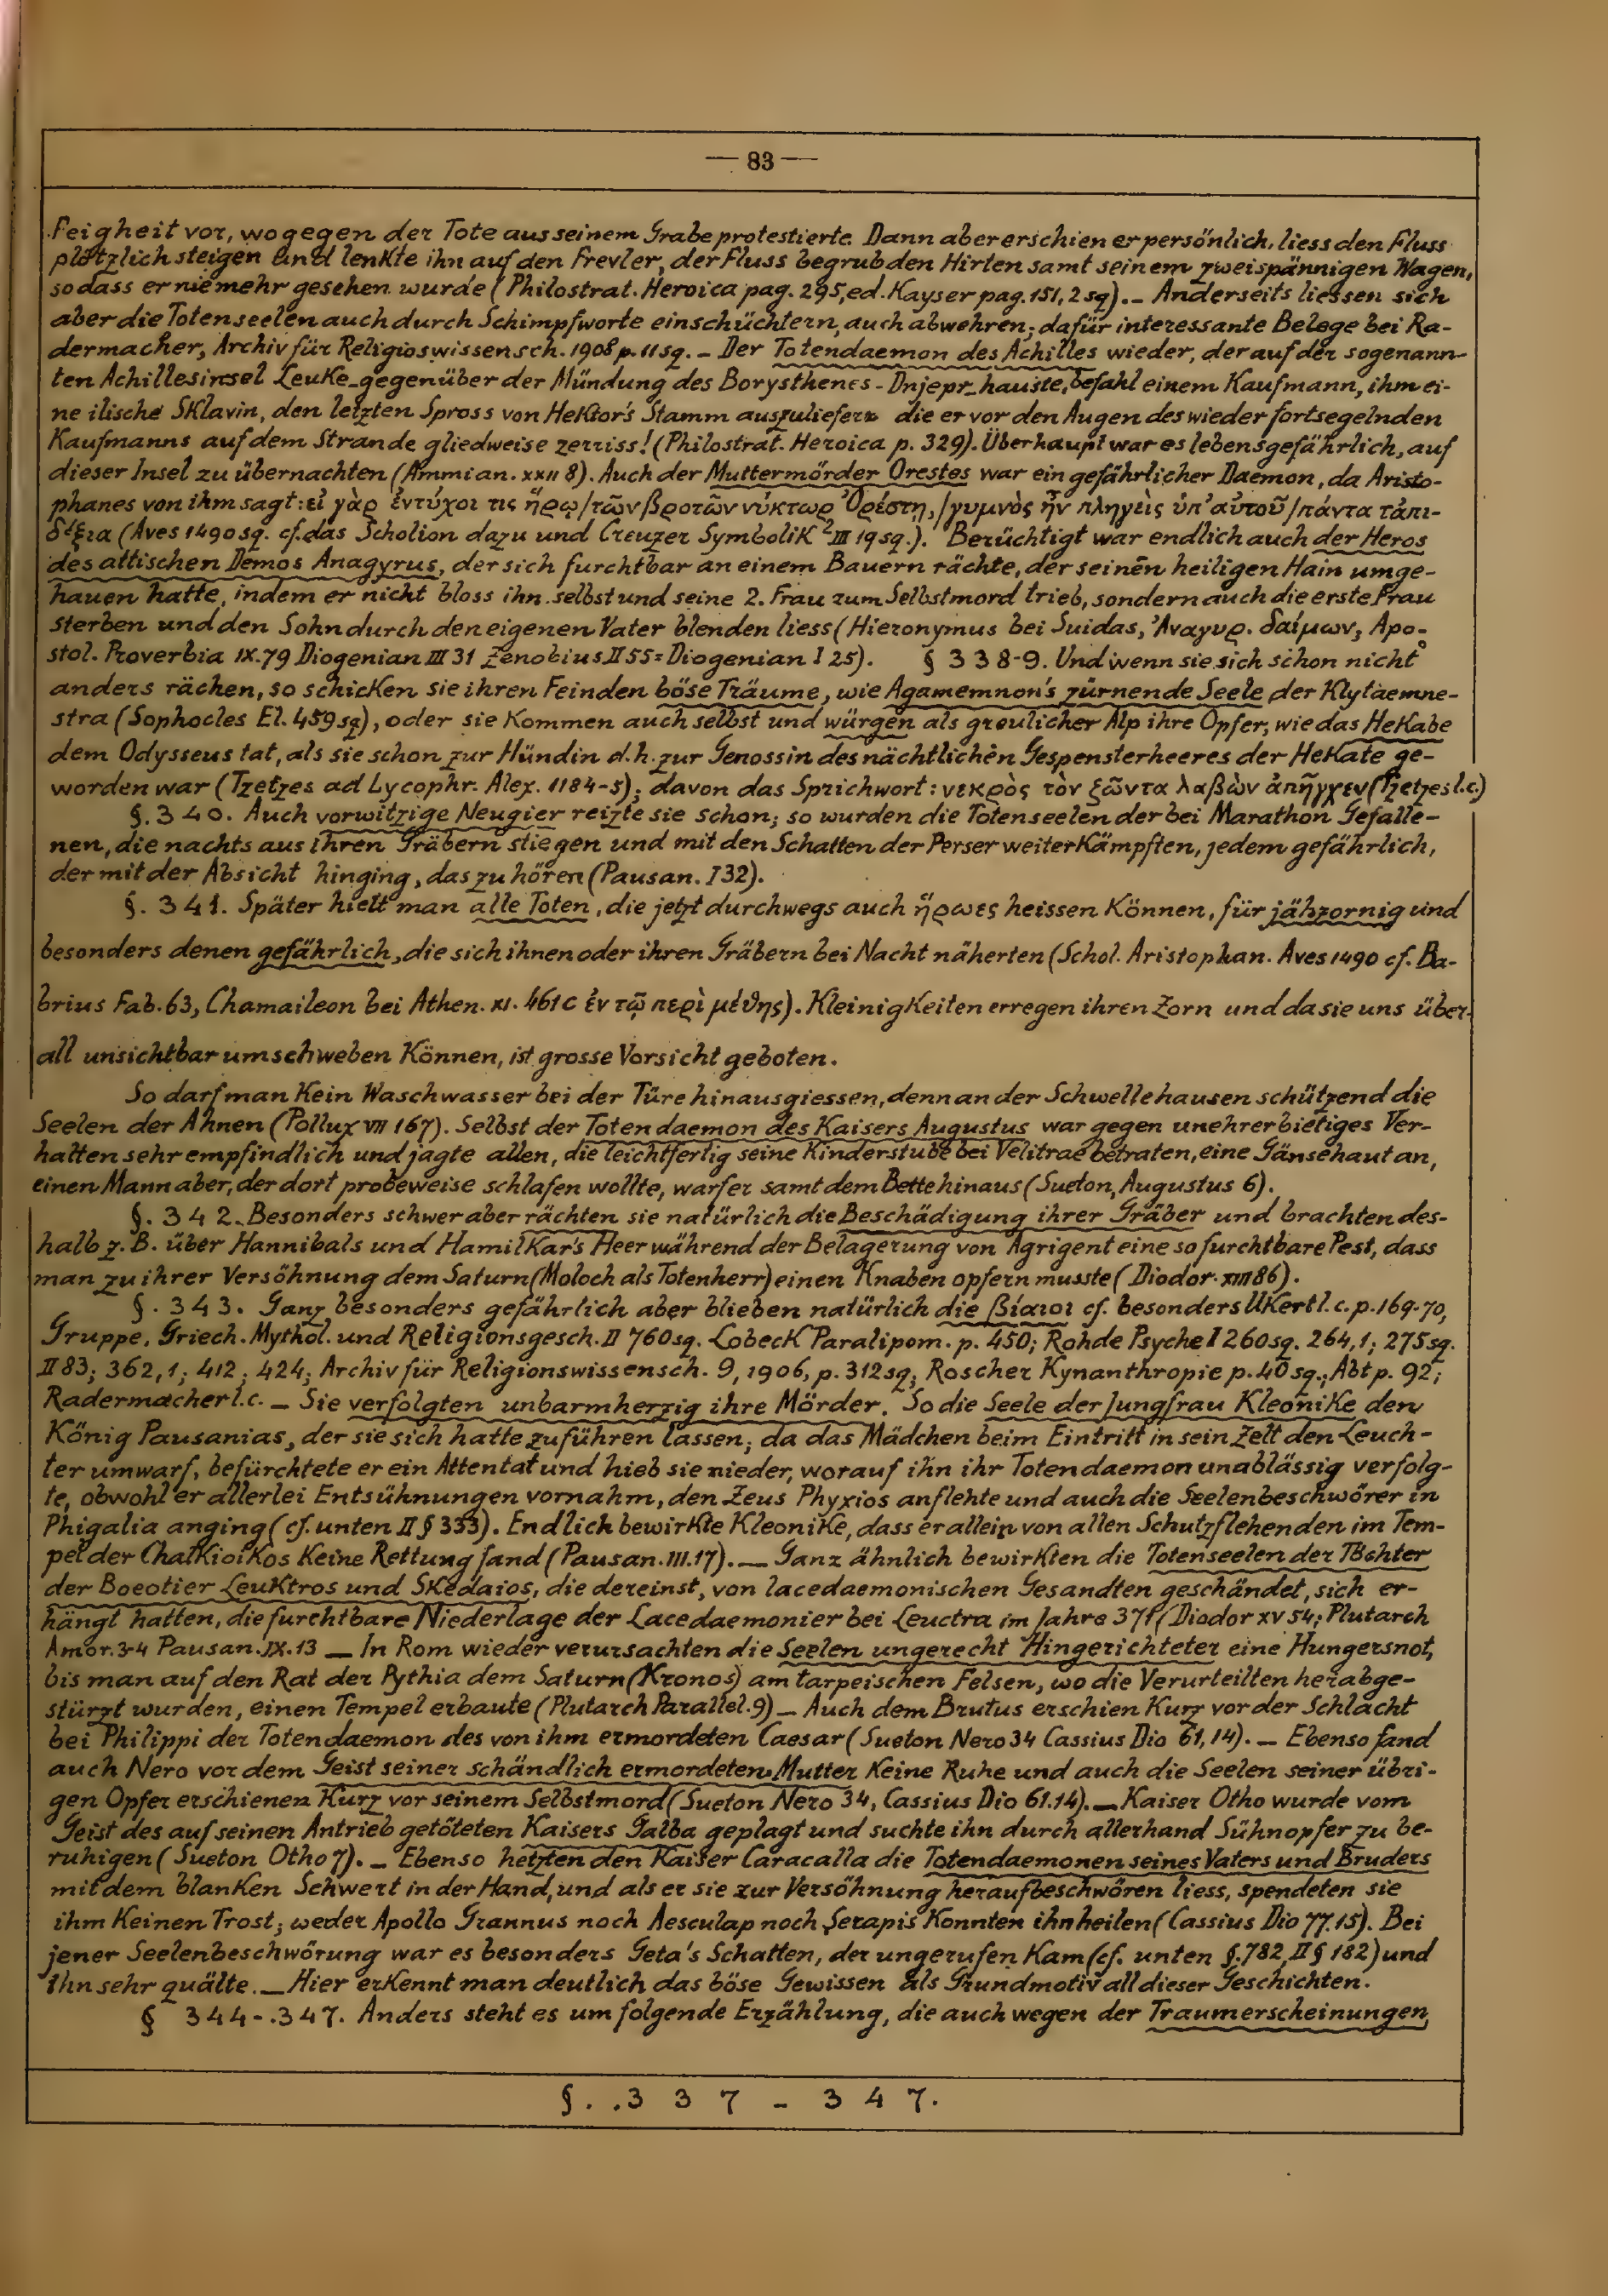 — 83 —
Feigheit vor, wogegen der Tote aus seinem Grabe protestierte. Dann aber erschien er persönlich, liess den Fluss
plötzlich steigen und lenkte ihn auf den Frevler, der Fluss begrub den Hirten samt seinem zweispännigen Wagen,
sodass er nie mehr gesehen wurde (Philostrat. Heroica pag. 295, ed. Kayser pag. 151, 2 sq). – Anderseits liessen sich
aber die Totenseelen auch durch Schimpfworte einschüchtern, auch abwehren; dafür interessante Belege bei Ra-
dermacher, Archiv für Religioswissensch. 1908 p. 11 sq. – Der Totendaemon des Achilles wieder, der auf der sogenann-
ten Achillesinsel Leuke – gegenüber der Mündung des Borysthenes - Dnjepr – hauste, befahl einem Kaufmann, ihm ei-
ne ilische Sklavin, den letzten Spross von Hektor's Stamm auszuliefern die er vor den Augen des wieder fortsegelnden
Kaufmanns auf dem Strande gliedweise zerriss! (Philostrat. Heroica p. 329). Überhaupt war es lebensgefährlich, auf
dieser Insel zu übernachten (Ammian. XXII 8). Auch der Muttermörder Orestes war ein gefährlicher Daemon, da Aristo-
phanes von ihm sagt: εἰ γὰρ ἐντύχοι τις ἥρῳ / τῶν βροτῶν νύκτωρ Ὀρέστῃ, / γυμνὸς ἦν πληγεὶς ὑπ' αὐτοῦ / πάντα τἀπι-
δέξια (Aves 1490 sq. cf. das Scholion dazu und Creuzer Symbolik ² III 19 sq.). Berüchtigt war endlich auch der Heros
des attischen Demos Anagyrus, der sich furchtbar an einem Bauern rächte, der seinen heiligen Hain umge-
hauen hatte, indem er nicht bloss ihn selbst und seine 2. Frau zum Selbstmord trieb, sondern auch die erste Frau
sterben und den Sohn durch den eigenen Vater blenden liess (Hieronymus bei Suidas, Ἀναγυρ. δαίμων, Apo-
stol. Proverbia IX. 79 Diogenian III 31 Zenobius II 55 = Diogenian I 25). § 338-9. Und wenn sie sich schon nicht
anders rächen, so schicken sie ihren Feinden böse Träume, wie Agamemnon's zürnende Seele der Klytaemne-
stra (Sophocles El. 459 sq), oder sie kommen auch selbst und würgen als greulicher Alp ihre Opfer, wie das Hekabe
dem Odysseus tat, als sie schon zur Hündin d.h. zur Genossin des nächtlichen Gespensterheeres der Hekate ge-
worden war (Tzetzes ad Lycophr. Alex. 1184-5); davon das Sprichwort: νεκρὸς τὸν ξῶντα λαβὼν ἀπῆγχεν (Tzetzes l.c.)
§. 340. Auch vorwitzige Neugier reizte sie schon; so wurden die Totenseelen der bei Marathon Gefalle-
nen, die nachts aus ihren Gräbern stiegen und mit den Schatten der Perser weiterkämpften, jedem gefährlich,
der mit der Absicht hinging, das zu hören (Pausan. I 32).
§. 341. Später hielt man alle Toten, die jetzt durchwegs auch ἥρωες heissen können, für jähzornig und
besonders denen gefährlich, die sich ihnen oder ihren Gräbern bei Nacht näherten (Schol. Aristophan. Aves 1490 cf. Ba-
brius Fab. 63, Chamaileon bei Athen. XI. 461 C ἐν τῷ περὶ μέθης). Kleinigkeiten erregen ihren Zorn und da sie uns über-
all unsichtbar umschweben können, ist grosse Vorsicht geboten.
So darf man kein Waschwasser bei der Türe hinausgiessen, denn an der Schwelle hausen schützend die
Seelen der Ahnen (Pollux VII 167). Selbst der Totendaemon des Kaisers Augustus war gegen unehrerbietiges Ver-
halten sehr empfindlich und jagte allen, die leichtfertig seine Kinderstube bei Velitrae betraten, eine Gänsehaut an,
einen Mann aber, der dort probeweise schlafen wollte, warf er samt dem Bette hinaus (Sueton, Augustus 6).
§. 342. Besonders schwer aber rächten sie natürlich die Beschädigung ihrer Gräber und brachten des-
halb z.B. über Hannibals und Hamilkar's Heer während der Belagerung von Agrigent eine so furchtbare Pest, dass
man zu ihrer Versöhnung dem Saturn (Moloch als Totenherr) einen Knaben opfern musste (Diodor. XIII 86).
§. 343. Ganz besonders gefährlich aber blieben natürlich die βίαιοι cf. besonders Ukert l.c. p. 169-70,
Gruppe, Griech. Mythol. und Religionsgesch. II 760 sq. Lobeck Paralipom. p. 450; Rohde Psyche I 260 sq. 264, 1; 275 sq.
II 83; 362, 1; 412; 424; Archiv für Religionswissensch. 9, 1906, p. 312 sq; Roscher Kynanthropie p. 40 sq.; Abt p. 92;
Radermacher l.c. – Sie verfolgten unbarmherzig ihre Mörder. So die Seele der Jungfrau Kleonike den
König Pausanias, der sie sich hatte zuführen lassen; da das Mädchen beim Eintritt in sein Zelt den Leuch-
ter umwarf, befürchtete er ein Attentat und hieb sie nieder, worauf ihn ihr Totendaemon unablässig verfolg-
te, obwohl er allerlei Entsühnungen vornahm, den Zeus Phyxios anflehte und auch die Seelenbeschwörer in
Phigalia anging (cf. unten II § 333). Endlich bewirkte Kleonike, dass er allein von allen Schutzflehenden im Tem-
pel der Chalkioikos keine Rettung fand (Pausan. III. 17). — Ganz ähnlich bewirkten die Totenseelen der Töchter
der Boeotier Leuktros und Skedaios, die dereinst, von lacedaemonischen Gesandten geschändet, sich er-
hängt hatten, die furchtbare Niederlage der Lacedaemonier bei Leuctra im Jahre 371 (Diodor XV 54; Plutarch
Amor. 3-4 Pausan. IX. 13 — In Rom wieder verursachten die Seelen ungerecht Hingerichteter eine Hungersnot,
bis man auf den Rat der Pythia dem Saturn (Kronos) am tarpeischen Felsen, wo die Verurteilten herabge-
stürzt wurden, einen Tempel erbaute (Plutarch Parallel. 9) – Auch dem Brutus erschien kurz vor der Schlacht
bei Philippi der Totendaemon des von ihm ermordeten Caesar (Sueton Nero 34 Cassius Dio 61, 14). – Ebenso fand
auch Nero vor dem Geist seiner schändlich ermordeten Mutter keine Ruhe und auch die Seelen seiner übri-
gen Opfer erschienen kurz vor seinem Selbstmord (Sueton Nero 34, Cassius Dio 61.14). — Kaiser Otho wurde vom
Geist des auf seinen Antrieb getöteten Kaisers Galba geplagt und suchte ihn durch allerhand Sühnopfer zu be-
ruhigen (Sueton Otho 7). – Ebenso hetzten den Kaiser Caracalla die Totendaemonen seines Vaters und Bruders
mit dem blanken Schwert in der Hand, und als er sie zur Versöhnung heraufbeschwören liess, spendeten sie
ihm keinen Trost; weder Apollo Grannus noch Aesculap noch Serapis konnten ihn heilen (Cassius Dio 77.15). Bei
jener Seelenbeschwörung war es besonders Geta's Schatten, der ungerufen kam (cf. unten §. 782, II § 182) und
ihn sehr quälte. — Hier erkennt man deutlich das böse Gewissen als Grundmotiv all dieser Geschichten.
§ 344-.347. Anders steht es um folgende Erzählung, die auch wegen der Traumerscheinungen
§. .337 - 347.